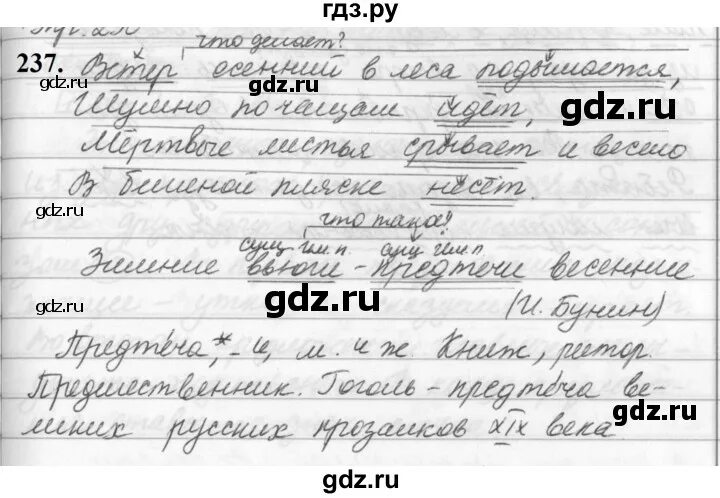 гдз.ру
Упр. 236
что делает?
237. Ветер осенний в леса подымается,
Шумно по чащам идёт,
Мёртвые листья срывает и весело
В бешеной пляске несёт.
что такое?
сущ. Им. п. сущ. Им. п.
Зимние вьюги – предтечи весенние
(И. Бунин)
Предте́ча,* -и, м. и ж. Книж., ритор.
Предшественник. Гоголь – предтеча ве-
ликих русских прозаиков XIX века
gdz.ru gdz.ru gdz.ru
gdz.ru gdz.ru gdz.ru
gdz.ru gdz.ru gdz.ru
gdz.ru gdz.ru gdz.ru
gdz.ru gdz.ru gdz.ru